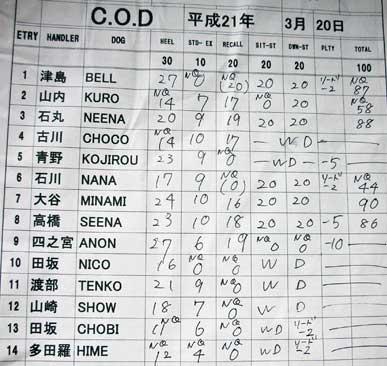 C.O.D 平成21年 3月 20日
ENTRY HANDLER DOG HEEL STD- EX RECALL SIT-ST DWN-ST PLTY TOTAL
30 10 20 20 20 100
1 津島 BELL 27 NQ 0 NQ (20) 20 20 リード -2 NQ 87
2 山内 KURO NQ 14 7 17 NQ 0 20 NQ 58
3 石丸 NEENA 20 9 19 20 20 88
4 古川 CHOCO NQ 14 10 17 - W D -
5 青野 KOJIROU 23 9 NQ 0 - W D - -5
6 石川 NANA 17 9 NQ (0) 20 20 リード -2 NQ 44
7 大谷 MINAMI 24 10 16 20 20 90
8 高橋 SEENA 23 10 18 20 20 -5 86
9 四之宮 ANON 27 6 19 NQ 0 NQ 0 -10
10 田坂 NICO NQ 16 NQ 0 NQ 0 W D
11 渡部 TENKO 21 9 NQ 0 W D
12 山崎 SHOW 18 7 NQ 0 W D
13 田坂 CHOBI NQ 6 NQ 0 W D リード -2
14 多田羅 HIME NQ 12 NQ 4 NQ 0 W D リード -2